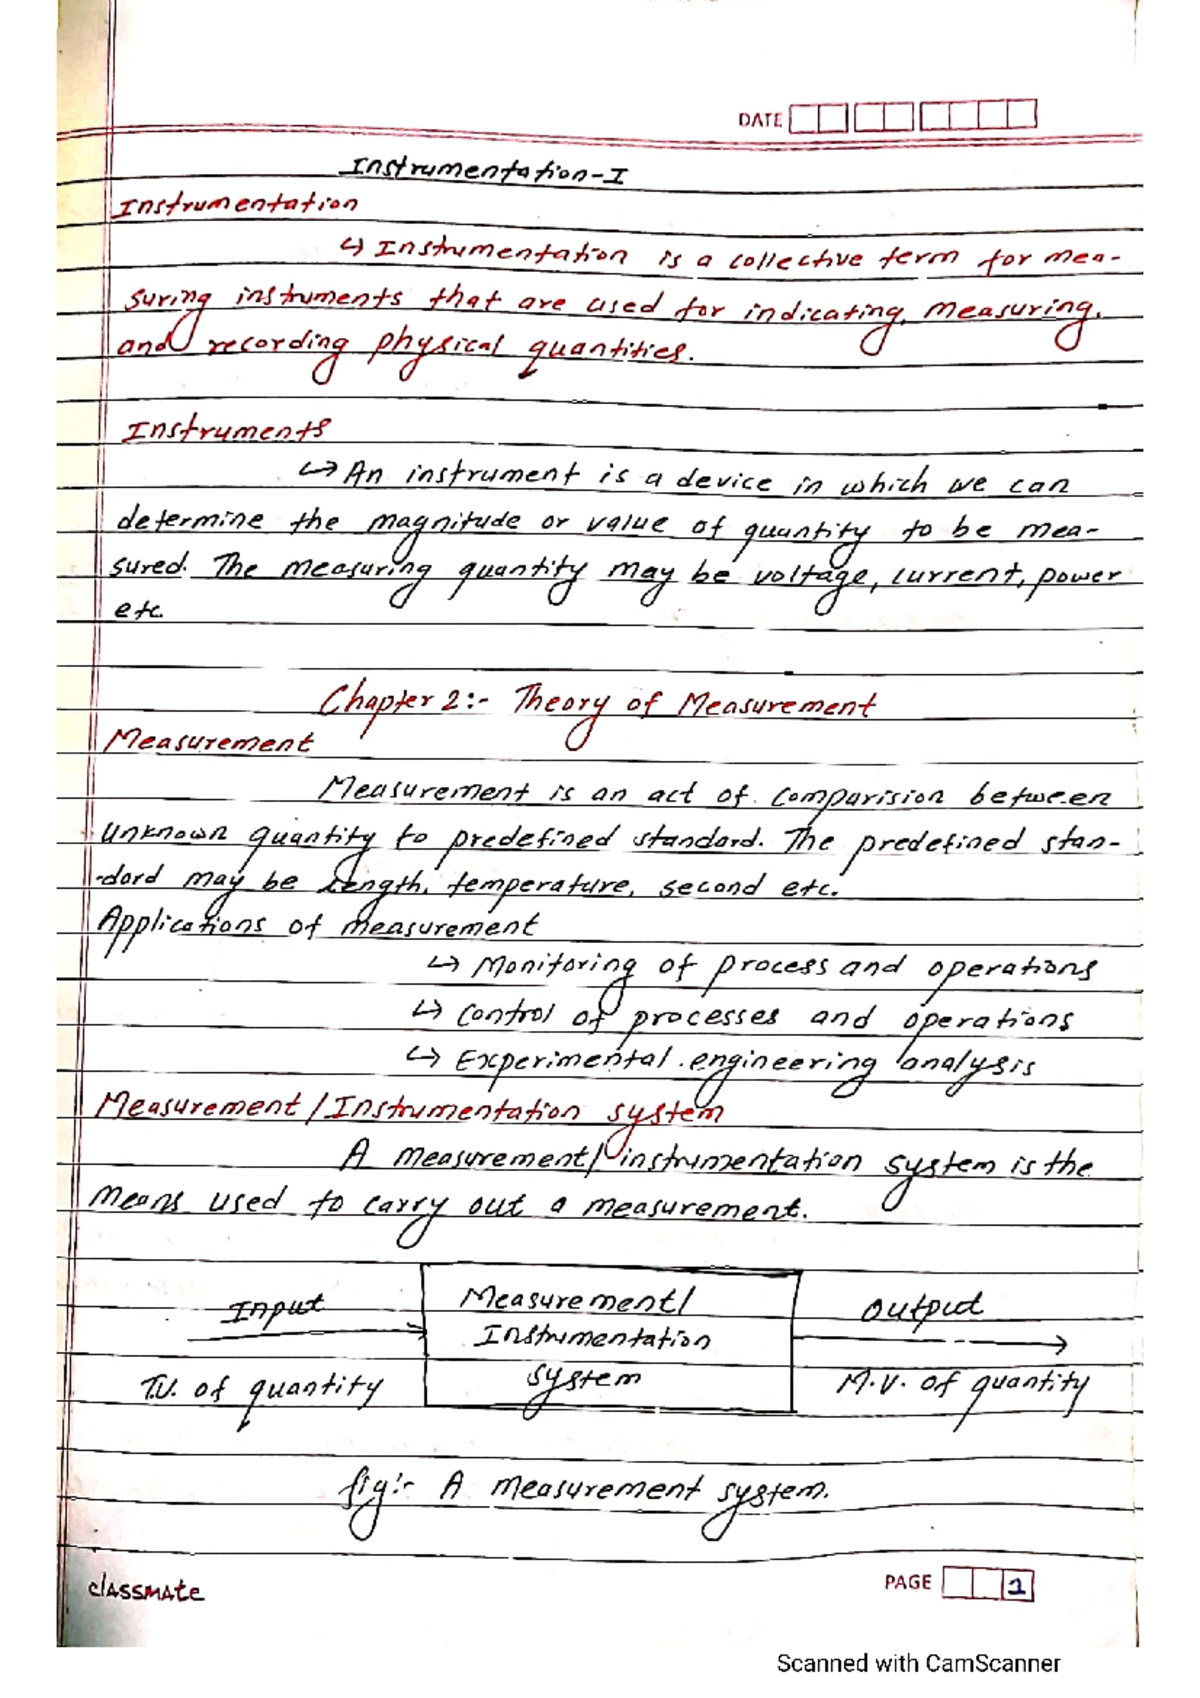 DATE
Instrumentation-I
Instrumentation
↳ Instrumentation is a collective term for mea-
suring instruments that are used for indicating, measuring,
and recording physical quantities.
Instruments
↳ An instrument is a device in which we can
determine the magnitude or value of quantity to be mea-
sured. The measuring quantity may be voltage, current, power
etc.
Chapter 2:- Theory of Measurement
Measurement
Measurement is an act of comparision between
unknown quantity to predefined standard. The predefined stan-
-dard may be length, temperature, second etc.
Applications of measurement
↳ Monitoring of process and operations
↳ Control of processes and operations
↳ Experimental engineering analysis
Measurement/Instrumentation system
A measurement/instrumentation system is the
means used to carry out a measurement.
Input
Measurement/
Instrumentation
system
Output
T.V. of quantity
M.V. of quantity
fig:- A measurement system.
classmate
PAGE 1
Scanned with CamScanner